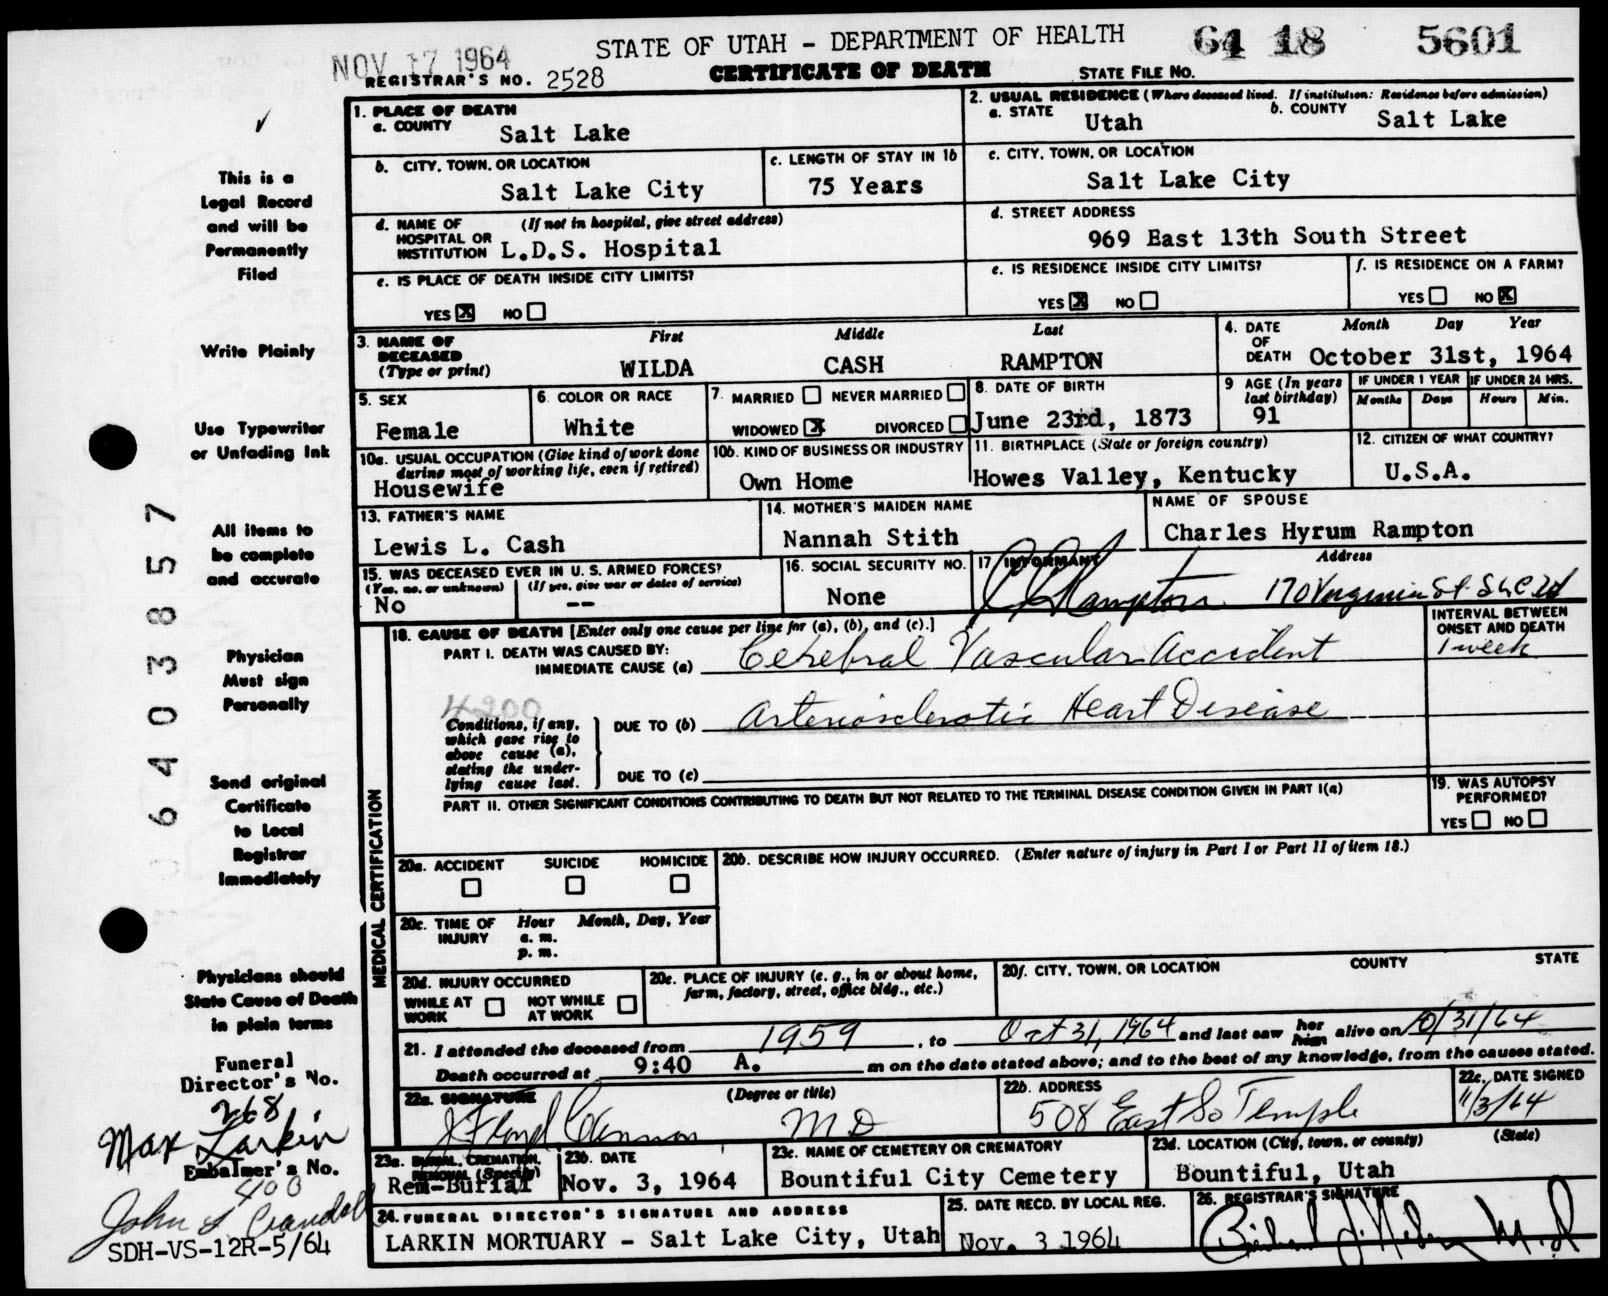 NOV 17 1964
STATE OF UTAH - DEPARTMENT OF HEALTH
64 18 5601
REGISTRAR'S NO. 2528
CERTIFICATE OF DEATH
STATE FILE NO.
This is a
Legal Record
and will be
Permanently
Filed
Write Plainly
Use Typewriter
or Unfading Ink
All items to
be complete
and accurate
Physician
Must sign
Personally
Send original
Certificate
to Local
Registrar
Immediately
Physicians should
State Cause of Death
in plain terms
Funeral
Director's No.
268
Max Larkin
Embalmer's No.
400
John Crandall
SDH-VS-12R-5/64
64038857
1. PLACE OF DEATH
a. COUNTY Salt Lake
2. USUAL RESIDENCE (Where deceased lived. If institution: Residence before admission)
a. STATE Utah b. COUNTY Salt Lake
b. CITY, TOWN, OR LOCATION
Salt Lake City
c. LENGTH OF STAY IN 1b
75 Years
c. CITY, TOWN, OR LOCATION
Salt Lake City
d. NAME OF HOSPITAL OR INSTITUTION (If not in hospital, give street address)
L.D.S. Hospital
d. STREET ADDRESS
969 East 13th South Street
e. IS PLACE OF DEATH INSIDE CITY LIMITS?
YES X NO
e. IS RESIDENCE INSIDE CITY LIMITS?
YES X NO
f. IS RESIDENCE ON A FARM?
YES NO X
3. NAME OF DECEASED (Type or print)
First Middle Last
WILDA CASH RAMPTON
4. DATE OF DEATH Month Day Year
October 31st, 1964
5. SEX
Female
6. COLOR OR RACE
White
7. MARRIED NEVER MARRIED
WIDOWED X DIVORCED
8. DATE OF BIRTH
June 23rd, 1873
9 AGE (In years last birthday)
91
IF UNDER 1 YEAR
Months Days
IF UNDER 24 HRS.
Hours Min.
10a. USUAL OCCUPATION (Give kind of work done during most of working life, even if retired)
Housewife
10b. KIND OF BUSINESS OR INDUSTRY
Own Home
11. BIRTHPLACE (State or foreign country)
Howes Valley, Kentucky
12. CITIZEN OF WHAT COUNTRY?
U.S.A.
13. FATHER'S NAME
Lewis L. Cash
14. MOTHER'S MAIDEN NAME
Nannah Stith
NAME OF SPOUSE
Charles Hyrum Rampton
15. WAS DECEASED EVER IN U. S. ARMED FORCES?
(Yes, no, or unknown) (If yes, give war or dates of service)
No --
16. SOCIAL SECURITY NO.
None
17 INFORMANT Address
Rampton 170 Virginia St.
18. CAUSE OF DEATH [Enter only one cause per line for (a), (b), and (c).]
PART I. DEATH WAS CAUSED BY:
IMMEDIATE CAUSE (a) Cerebral Vascular Accident
INTERVAL BETWEEN ONSET AND DEATH
1 week
4200
Conditions, if any, which gave rise to above cause (a), stating the underlying cause last.
DUE TO (b) Arteriosclerotic Heart Disease
DUE TO (c)
PART II. OTHER SIGNIFICANT CONDITIONS CONTRIBUTING TO DEATH BUT NOT RELATED TO THE TERMINAL DISEASE CONDITION GIVEN IN PART I(a)
19. WAS AUTOPSY PERFORMED?
YES NO
MEDICAL CERTIFICATION
20a. ACCIDENT SUICIDE HOMICIDE
20b. DESCRIBE HOW INJURY OCCURRED. (Enter nature of injury in Part I or Part II of item 18.)
20c. TIME OF INJURY Hour Month, Day, Year
a. m.
p. m.
20d. INJURY OCCURRED
WHILE AT WORK NOT WHILE AT WORK
20e. PLACE OF INJURY (e. g., in or about home, farm, factory, street, office bldg., etc.)
20f. CITY, TOWN, OR LOCATION COUNTY STATE
21. I attended the deceased from 1959, to Oct 31, 1964 and last saw her him alive on 10/31/64
Death occurred at 9:40 A. m on the date stated above; and to the best of my knowledge, from the causes stated.
22a. SIGNATURE (Degree or title)
J Floyd Cannon MD
22b. ADDRESS
508 East So Temple
22c. DATE SIGNED
11/3/64
23a. BURIAL, CREMATION, REMOVAL (Specify)
Rem-Burial
23b. DATE
Nov. 3, 1964
23c. NAME OF CEMETERY OR CREMATORY
Bountiful City Cemetery
23d. LOCATION (City, town, or county) (State)
Bountiful, Utah
24. FUNERAL DIRECTOR'S SIGNATURE AND ADDRESS
LARKIN MORTUARY - Salt Lake City, Utah
25. DATE RECD. BY LOCAL REG.
Nov. 3 1964
26. REGISTRAR'S SIGNATURE